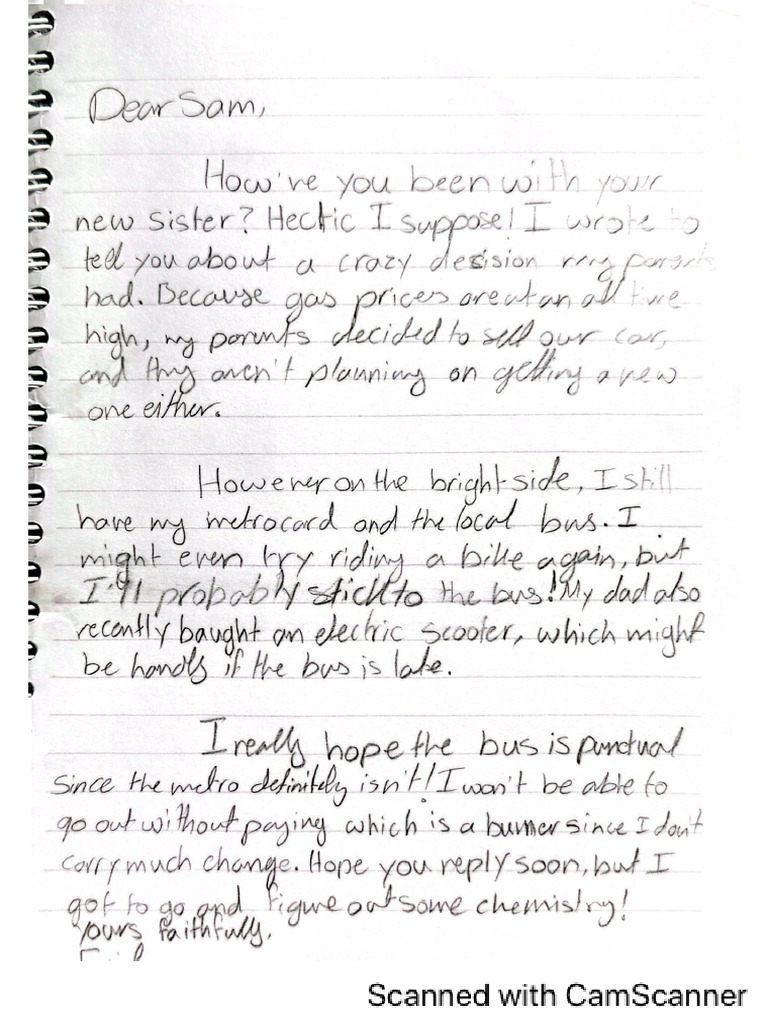 Dear Sam,
How've you been with your
new sister? Hectic I suppose! I wrote to
tell you about a crazy desision my parents
had. Because gas prices are at an all time
high, my parents decided to sell our car,
and they aren't planning on getting a new
one either.
However on the bright side, I still
have my metrocard and the local bus. I
might even try riding a bike again, but
I'll probably stick to the bus! My dad also
recently baught an electric scooter, which might
be handy if the bus is late.
I really hope the bus is punctual
since the metro definitely isn't! I won't be able to
go out without paying which is a bummer since I don't
carry much change. Hope you reply soon, but I
got to go and figure out some chemistry!
Yours faithfully,
Scanned with CamScanner